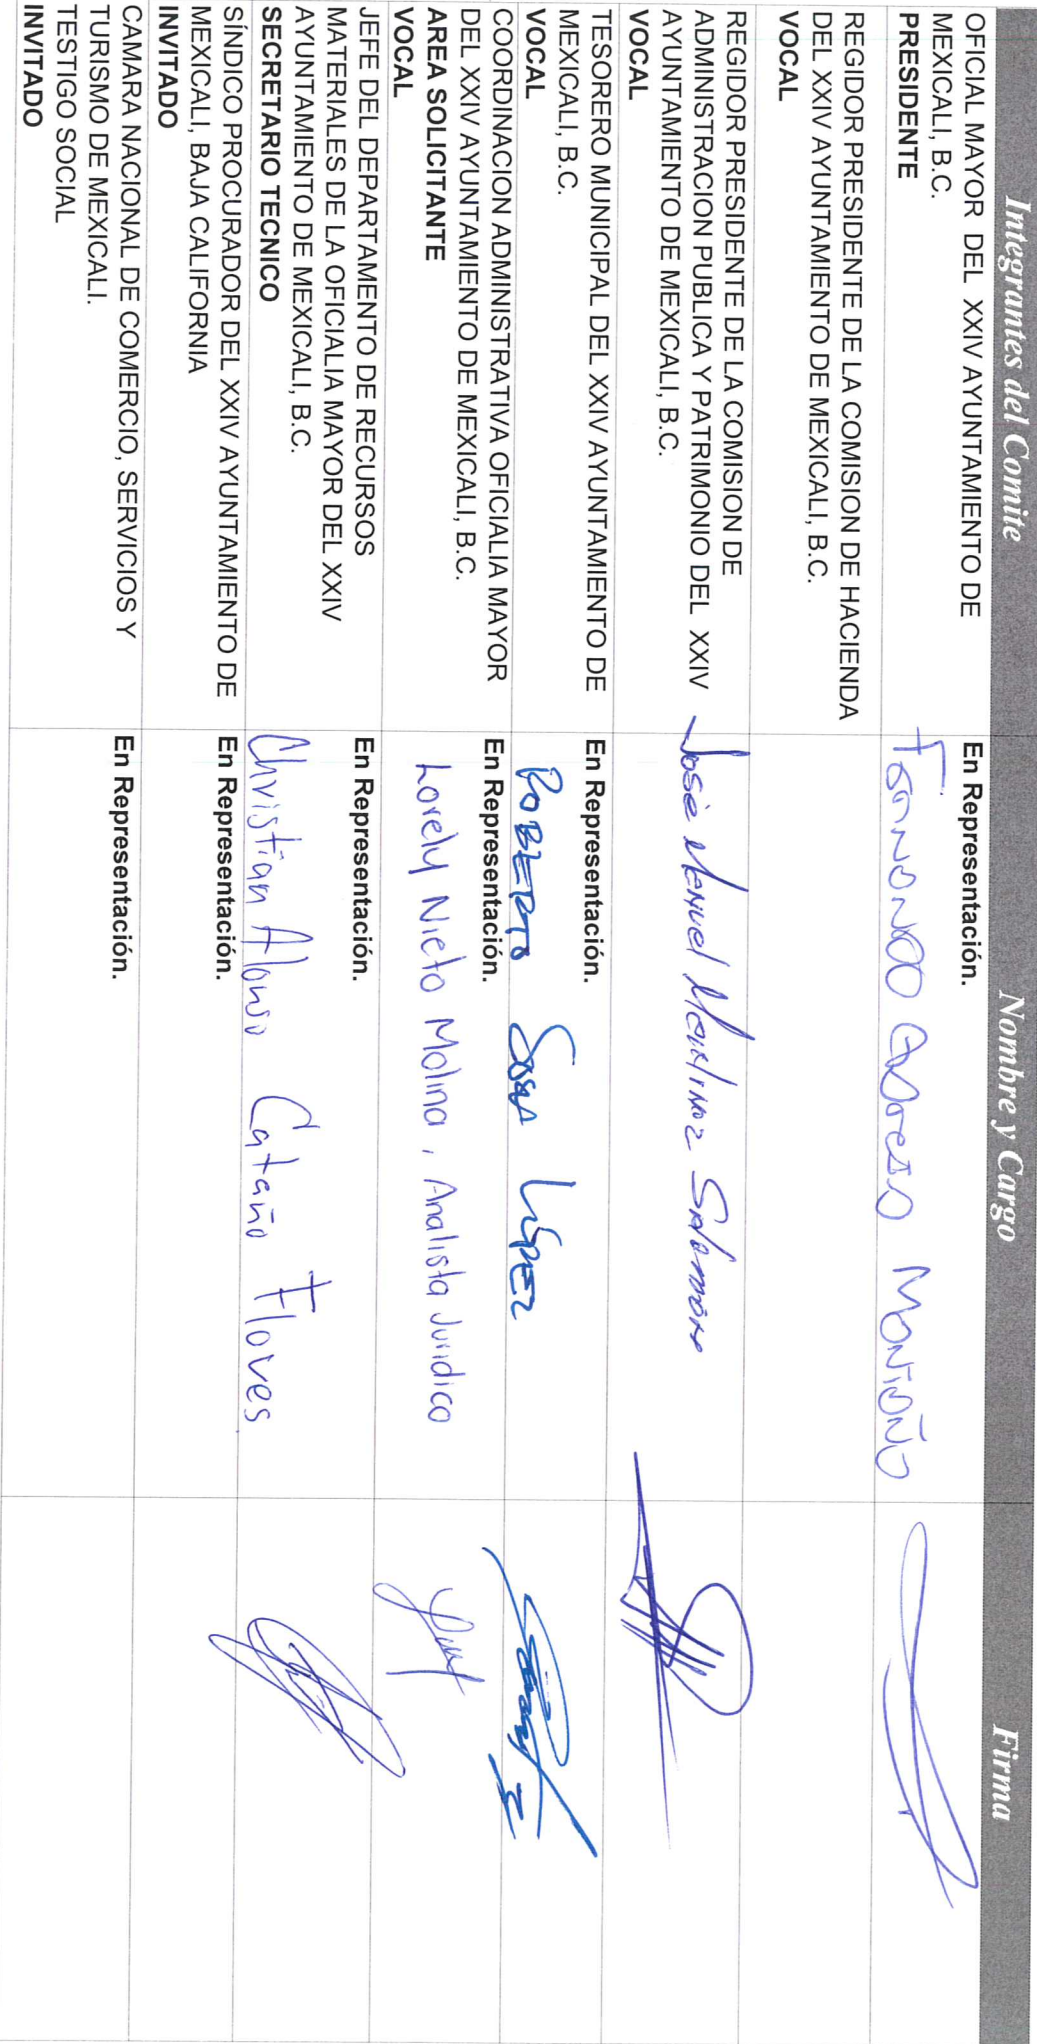 Integrantes del Comite
Nombre y Cargo
Firma
OFICIAL MAYOR DEL XXIV AYUNTAMIENTO DE
MEXICALI, B.C.
PRESIDENTE
En Representación.
MONTAÑO
REGIDOR PRESIDENTE DE LA COMISION DE HACIENDA
DEL XXIV AYUNTAMIENTO DE MEXICALI, B.C.
VOCAL
REGIDOR PRESIDENTE DE LA COMISION DE
ADMINISTRACION PUBLICA Y PATRIMONIO DEL XXIV
AYUNTAMIENTO DE MEXICALI, B.C.
VOCAL
José Manuel Martinez Salomón
TESORERO MUNICIPAL DEL XXIV AYUNTAMIENTO DE
MEXICALI, B.C.
VOCAL
En Representación.
ROBERTO SOSA LÓPEZ
COORDINACION ADMINISTRATIVA OFICIALIA MAYOR
DEL XXIV AYUNTAMIENTO DE MEXICALI, B.C.
AREA SOLICITANTE
VOCAL
En Representación.
Lorely Nieto Molina, Analista Juridico
JEFE DEL DEPARTAMENTO DE RECURSOS
MATERIALES DE LA OFICIALIA MAYOR DEL XXIV
AYUNTAMIENTO DE MEXICALI, B.C.
SECRETARIO TECNICO
En Representación.
Christian Alonso Cataño Flores
SÍNDICO PROCURADOR DEL XXIV AYUNTAMIENTO DE
MEXICALI, BAJA CALIFORNIA
INVITADO
En Representación.
CAMARA NACIONAL DE COMERCIO, SERVICIOS Y
TURISMO DE MEXICALI.
TESTIGO SOCIAL
INVITADO
En Representación.